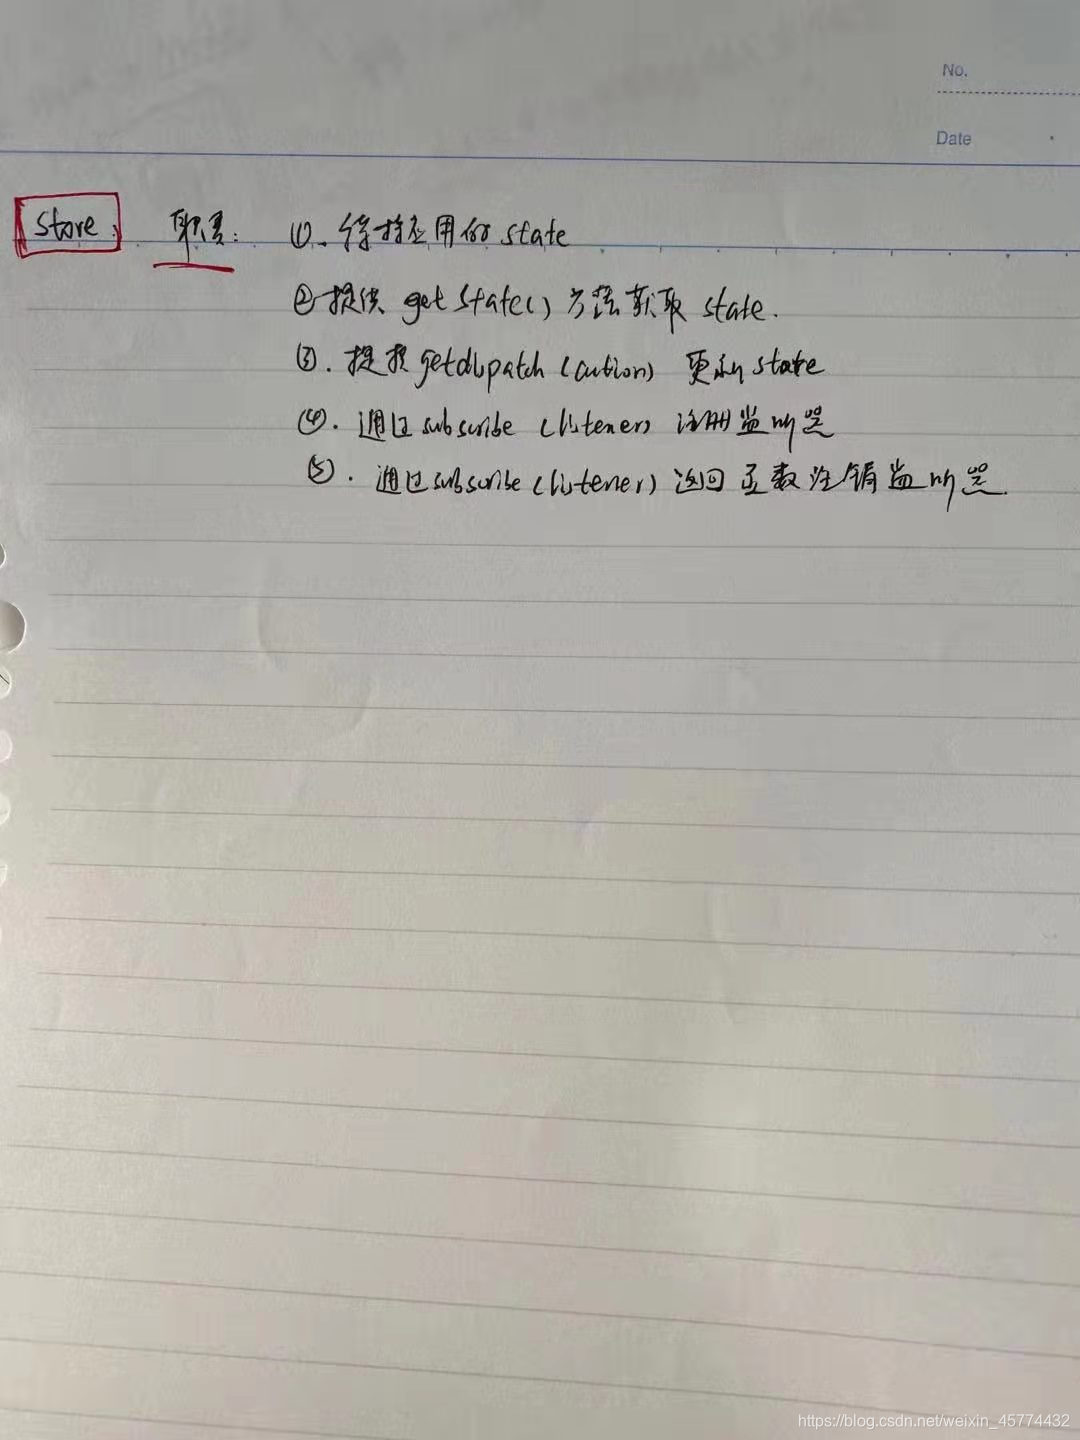 No.
Date
Store: 职责: ①. 维持应用的 state
② 提供 getState() 方法获取 state.
③. 提提 getdispatch (action) 更新 state
④. 通过 subscribe (listener) 注册监听器
⑤. 通过 subscribe (listener) 返回函数注销监听器.
https://blog.csdn.net/weixin_45774432